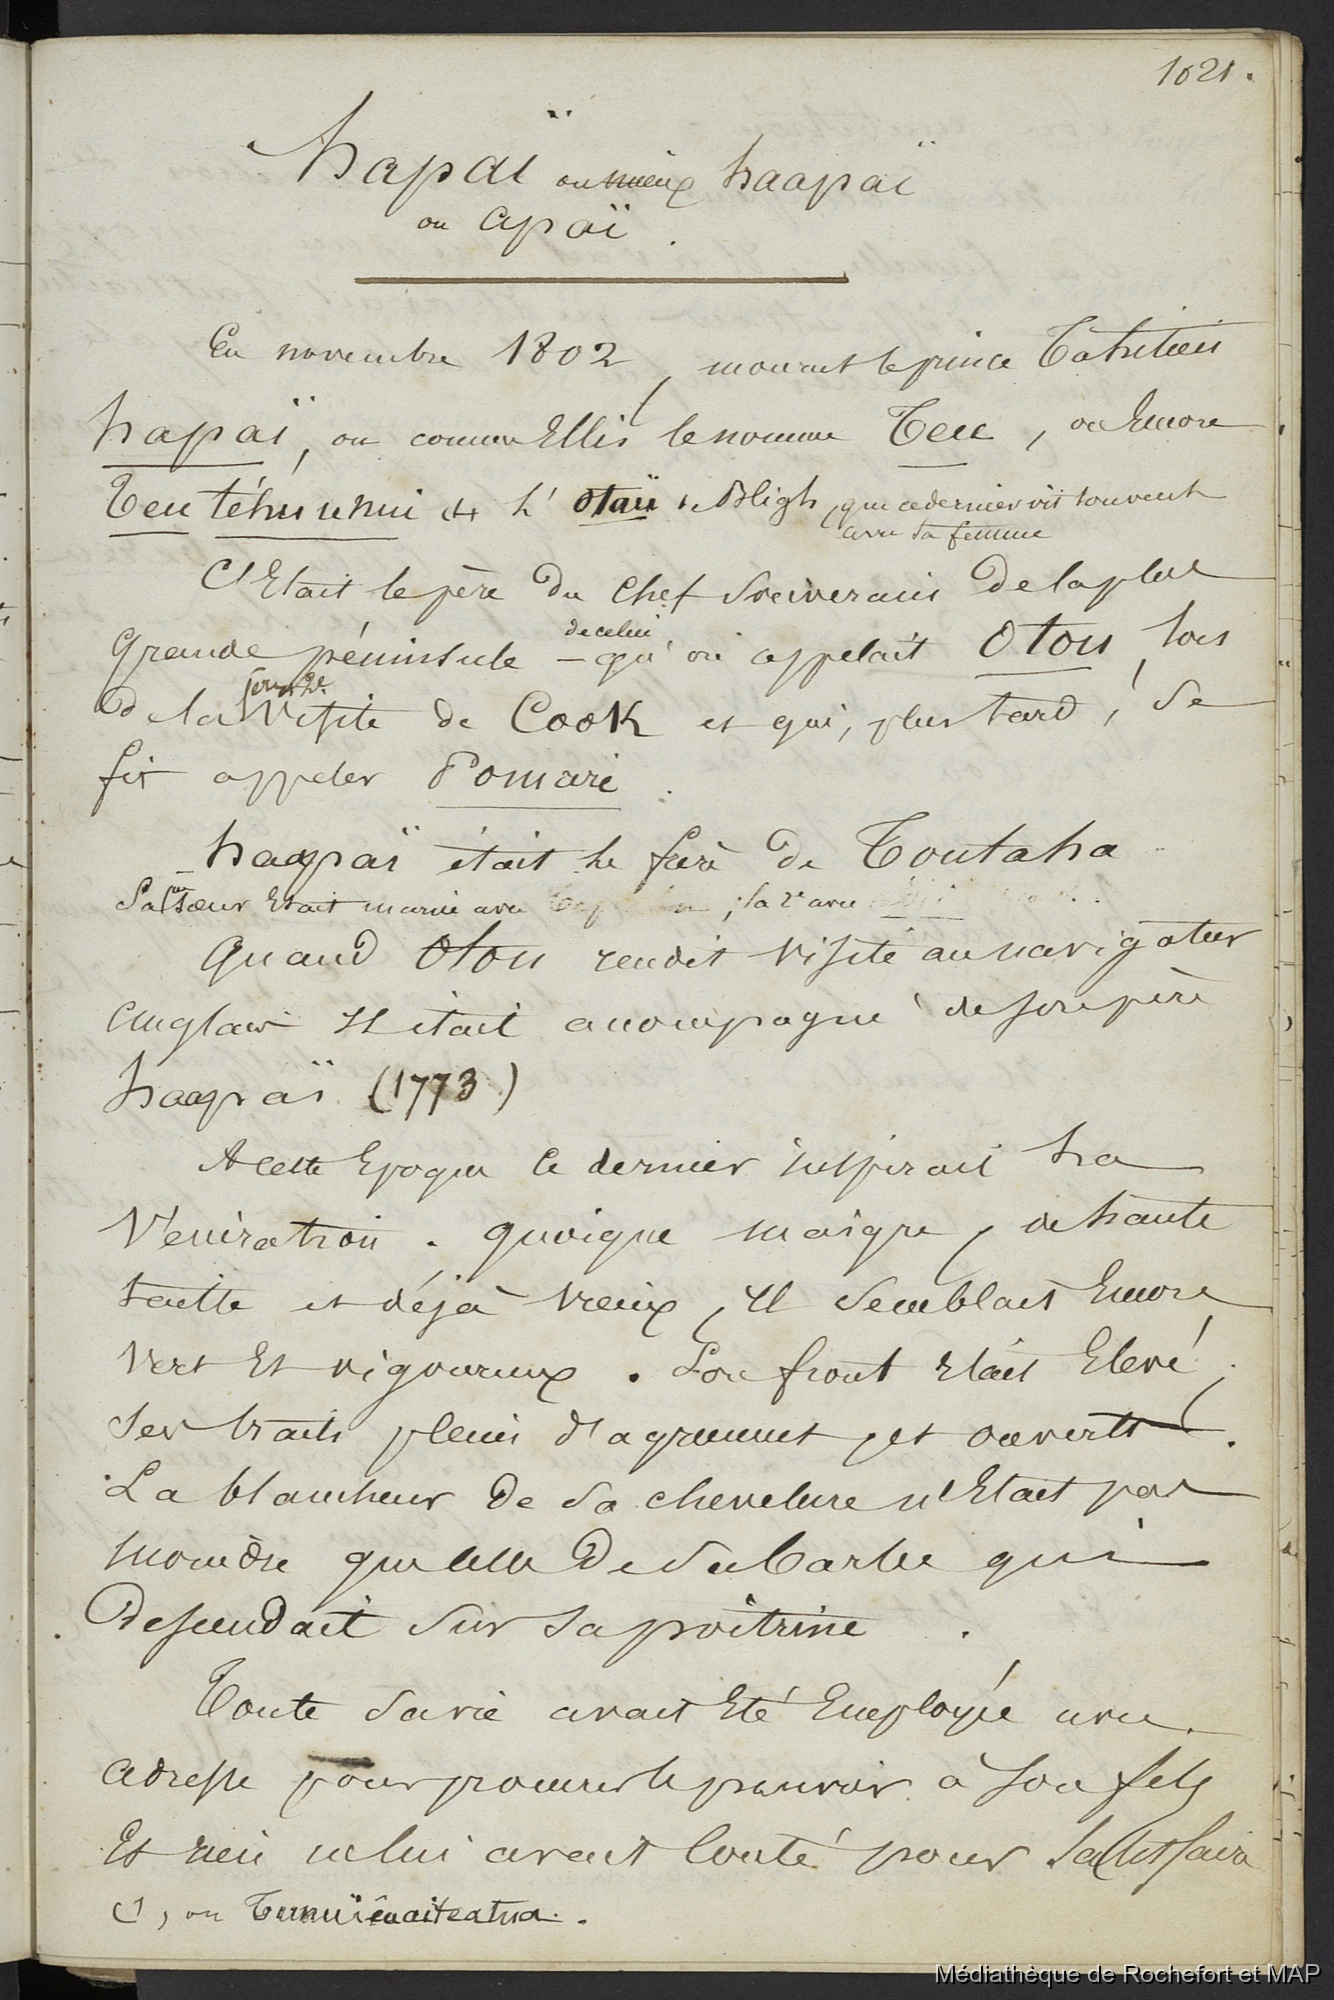 1021.
hapaï ou mieux haapaï
ou apaï.
En novembre 1802, mourut le prince Tahitien
hapaï, ou comme Ellis le nomme Teu, ou Encore
Teu téhu unui (1) l'Otaü de Bligh, que ce dernier vit souvent
avec sa femme
C'Etait le père du chef souverain de la plus
grande péninsule de celui qu'on appelait Otou, lors
de la visite de Cook et qui, plus tard, se
fit appeler Pomaré.
haapaï était le frère de Toutaha
Sa 1ère sœur Etait mariée avec ; la 2e avec
Quand Otou rendit visite au navigateur
anglais il était accompagné de son père
haapaï (1773)
A cette Epoque ce dernier inspirait la
Vénération. quoique maigre, de haute
taille et déjà vieux, il semblait Encore
vert Et vigoureux. Son front Etait Elevé,
ses traits pleins d'agrément, et ouverts.
La blancheur de sa chevelure n'Etait pas
moindre que celle de sa barbe qui
descendait sur sa poitrine.
Toute sa vie avait Eté Employée avec
adresse pour procurer le pouvoir à son fils
Et rien ne lui avait Couté pour satisfaire
(1), ou
Médiathèque de Rochefort et MAP